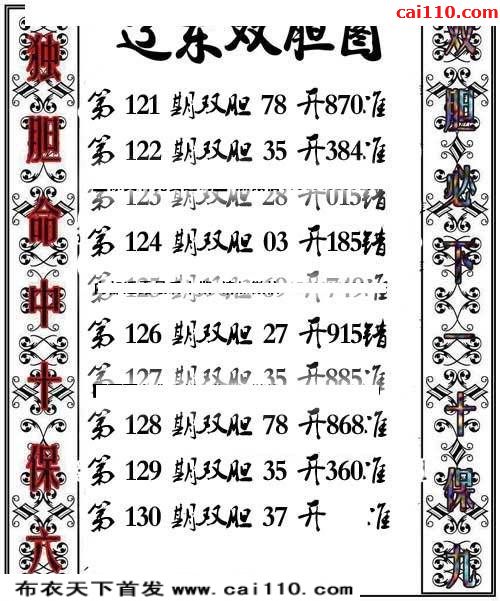 cai110.com
辽东双胆图
独胆命中十保六
第 121 期双胆 78 开870准
第 122 期双胆 35 开384准
第 123 期双胆 28 开015错
第 124 期双胆 03 开185错
期双胆 开749准
第 126 期双胆 27 开915错
第 127 期双胆 35 开885准
第 128 期双胆 78 开868准
第 129 期双胆 35 开360准
第 130 期双胆 37 开 准
双胆必下一十保九
布衣天下首发 www.cai110.com